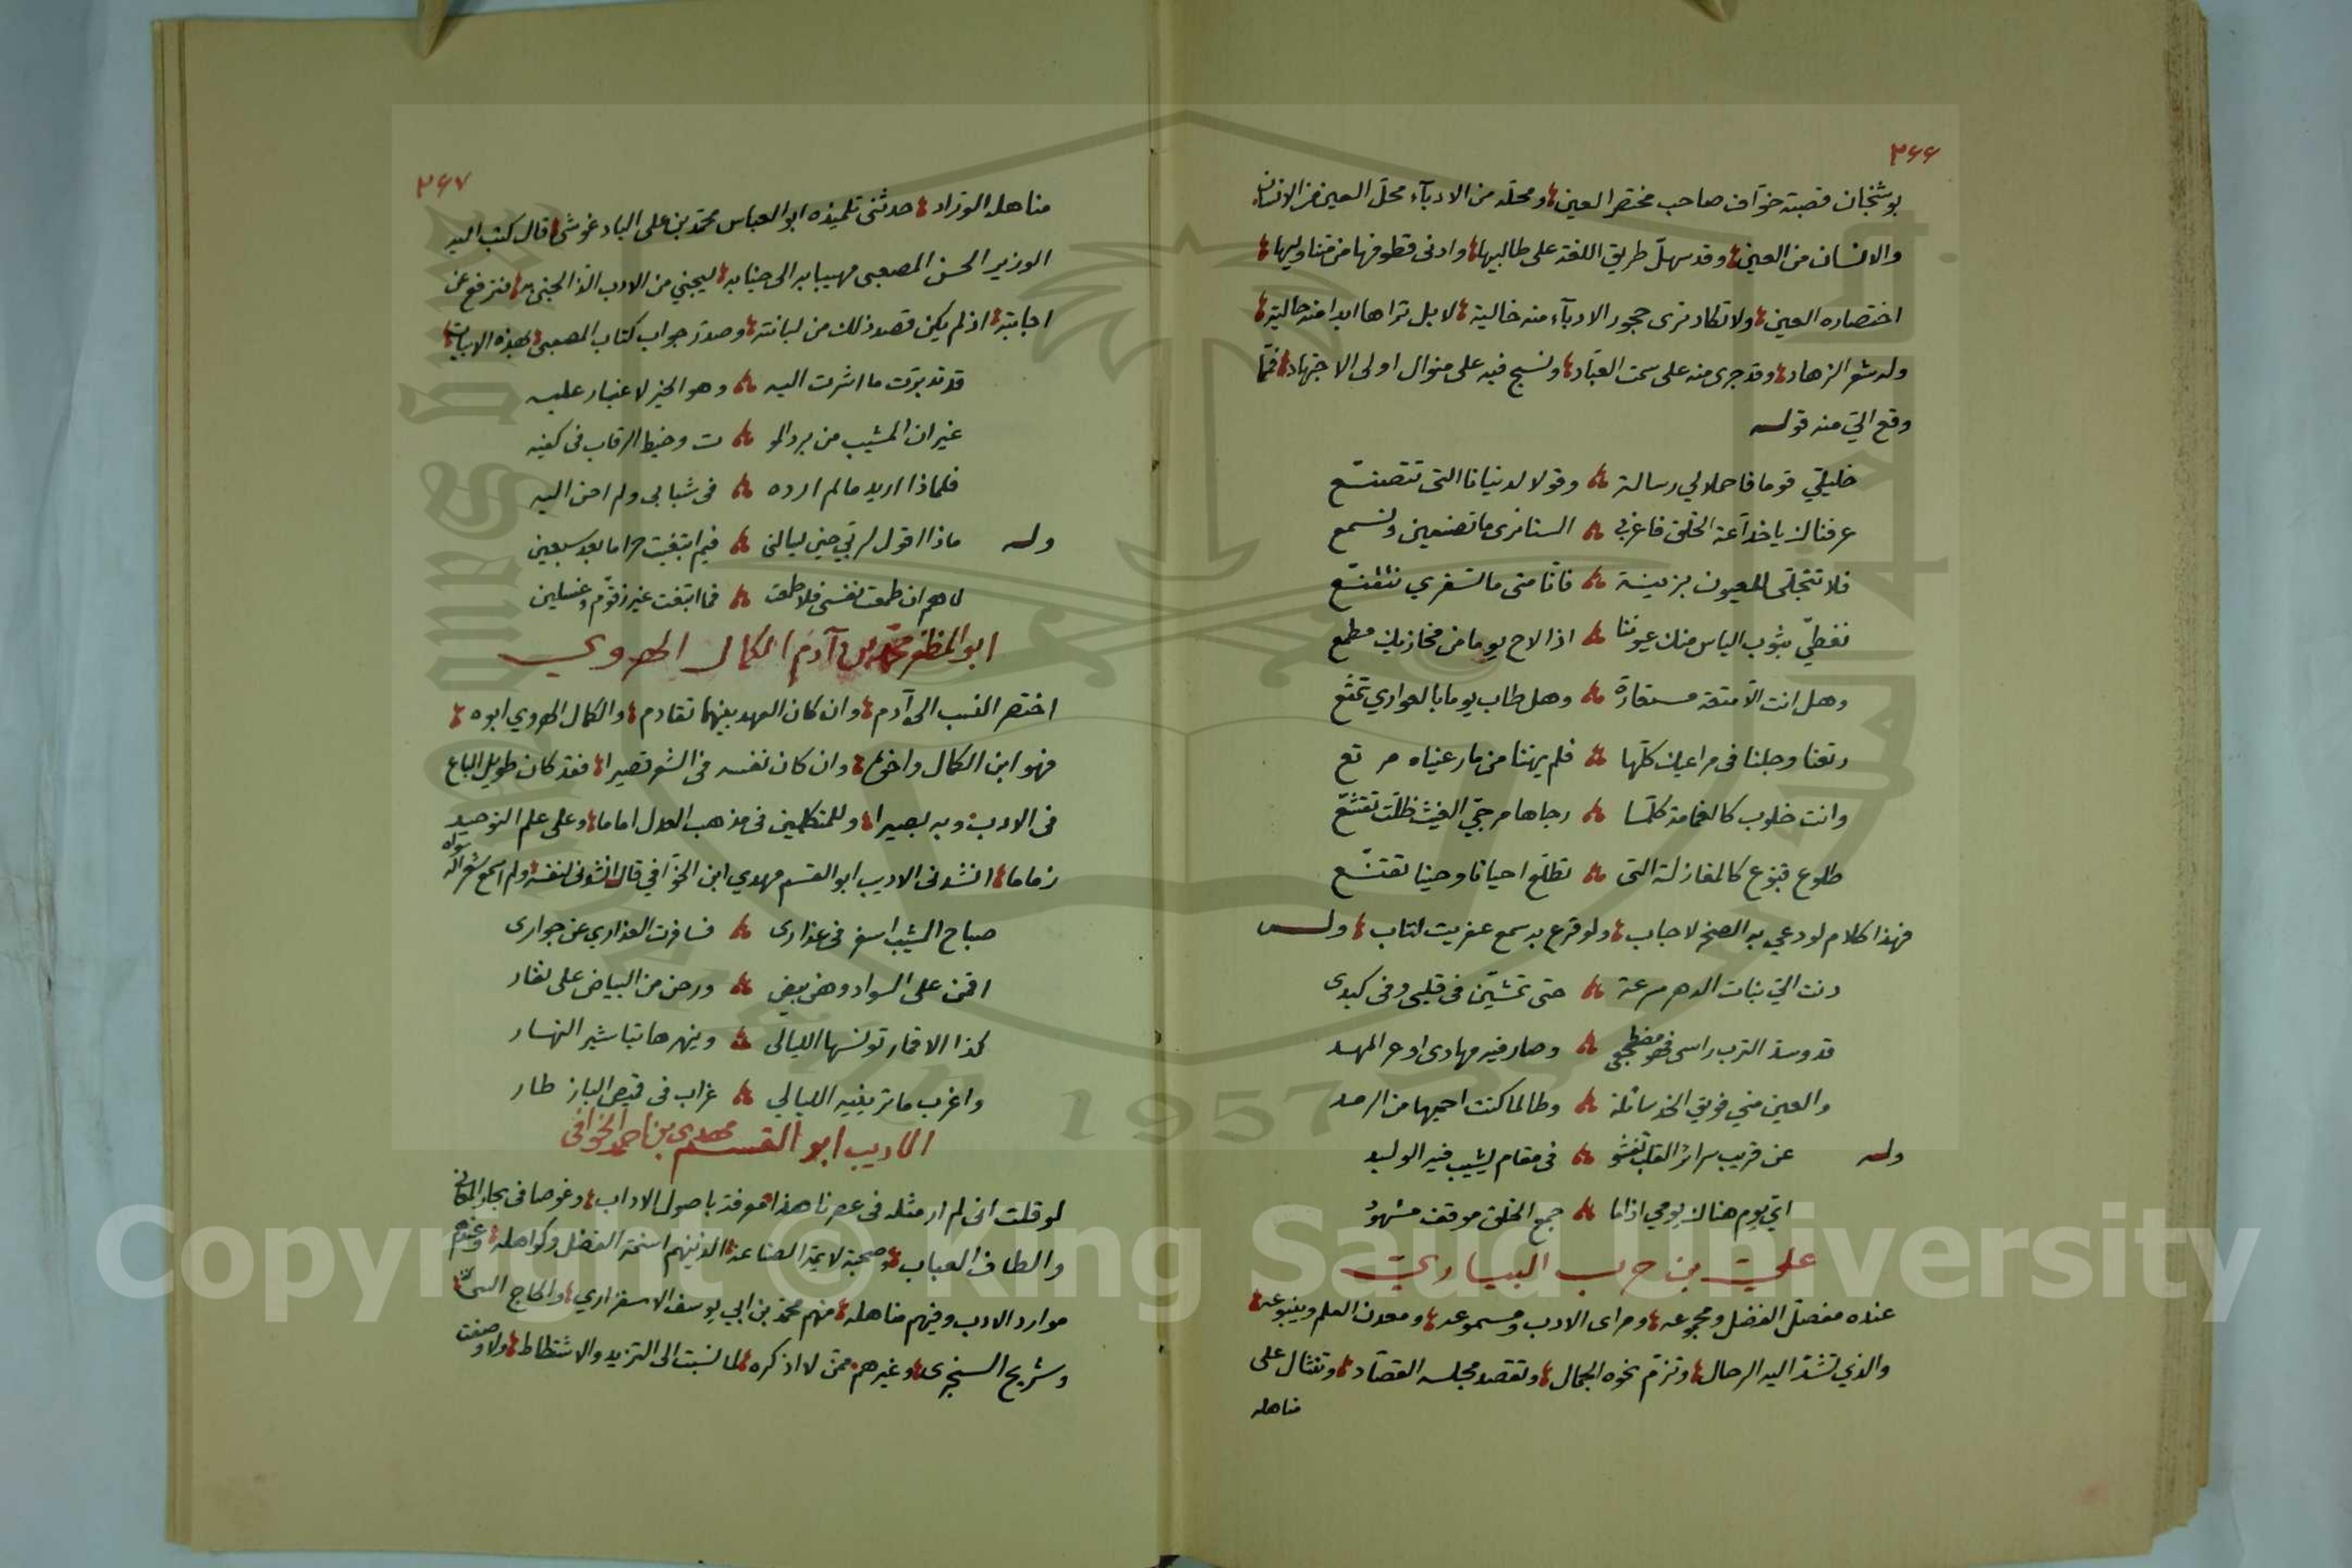 ٣٦٦
بوشنجان قصبة خواف صاحب مختصر العين ومحله من الادبآء محل العين من الانسان
والانسان من العين وقد سهل طريق اللغة على طالبيها وادنى قطوفها من متناوليها
اختصاره العين ولا تكاد ترى حجور الادبآء منه خالية لا بل تراها ابدا منه حالية
وله شعر الزهاد وقد جرى منه على سمت العباد ونسج فيه على منوال اولى الاجتهاد فمما
وقع الي منه قوله
خليلي قوما فاحملا لي رسالة وقولا لدنيانا التى تتصنع
عرفناك يا خدآعة الخلق فاغربي السنا نرى ما تصنعين ونسمع
فلا تتجلى للعيون بزينة فانا متى ما تسفري نتقنع
نغطي بثوب الياس منك عيوننا اذا لاح يوما من مخازيك مطمع
وهل انت الا متعة مستعارة وهل طاب يوما بالعواري تمتع
رتعنا وجلنا فى مراعيك كلها فلم يهننا مما رعيناه مرتع
وانت خلوب كالغمامة كلما رجاها مرجي الغيث ظلت تقشع
طلوع قبوع كالمغازلة التى تطلع احيانا وحينا تقنع
فهذا كلام لو دعي به الصخر لاجاب ولو قرع به سمع عفريت لتاب وله
دنت الي بنات الدهر مسرعة حتى تمشين فى قلبى وفى كبدى
قد وسد الترب راسى فهو مضطجعى وصار فيه مهادى اوعر المهد
والعين مني فويق الخد سائلة وطالما كنت احميها من الرمد
وله عن قريب سرائر القلب تفشو فى مقام يشيب فيه الوليد
اي يوم هناك يومي اذا ما جمع الخلق موقف مشهود
علي بن حرب البياري
عنده مفصل الفضل ومجموعه ومراى الادب ومسموعه ومعدن العلم وينبوعه
والذي تشد اليه الرحال وتزم نحوه الجمال وتقصد مجلسه القصاد وتنثال على
مناهله
٣٦٧
مناهله الوراد حدثنى تلميذه ابو العباس محمد بن على الباد غوشى قال كتب اليه
الوزير الحسن المصعبى مهيبا به الى جنابه ليجني من الادب الذ الجنى به فترفع عن
اجابته اذ لم يكن قصد ذلك من لبانته وصدر جواب كتاب المصعبى بهذه الابيات
قد تدبرت ما اشرت اليه وهو الخير لا غبار عليه
غير ان المشيب من برد المو ت وخيط الرقاب فى كفيه
فلماذا اريد ما لم ارده فى شبابى ولم احن اليه
وله ماذا اقول لربي حين يسالنى فيم ابتغيت حراما بعد سبعين
لاهم ان طمعت نفسى فلا طمعت فما ابتغت غير زقوم وغسلين
ابو المظفر محمد بن آدم الكمال الهروي
اختصر النسب الى آدم وان كان العهد بينهما تقادم والكمال الهروي ابوه
فهو ابن الكمال واخوه وان كان نفسه فى الشعر قصيرا فقد كان طويل الباع
فى الادب وبه بصيرا وللمتكلمين فى مذهب العدل اماما وعلى علم التوحيد
زماما انشدنى الاديب ابو القسم مهدي ابن الخوافي قال انشدنى لنفسه ولم اسمع شعرا له سواه
صباح الشيب اسفر فى عذارى فسافرت العذارى عن جوارى
اقمن على السواد وهن بيض ورحن من البياض على نفار
كذا الاقمار تونسها الليالى وينهرها تباشير النهار
واغرب ما تريفيه الليالي غراب فى قميص الباز طار
الاديب ابو القسم مهدى بن احمد الخوافى
لو قلت انى لم ار مثله فى عصرنا هذا معرفة باصول الاداب وغوصا فى بحار المعانى
والطاف العباب وصحبة لايمة الصناعة الذينهم اسنمة الفضل وكواهله وعندهم
موارد الادب وفيهم مناهله منهم محمد بن ابي يوسف الاسفزاري والحاج
وشريح السنجرى وغيرهم ممن لا اذكره لما نسبت الى التزيد والاشتطاط ولا وصفت